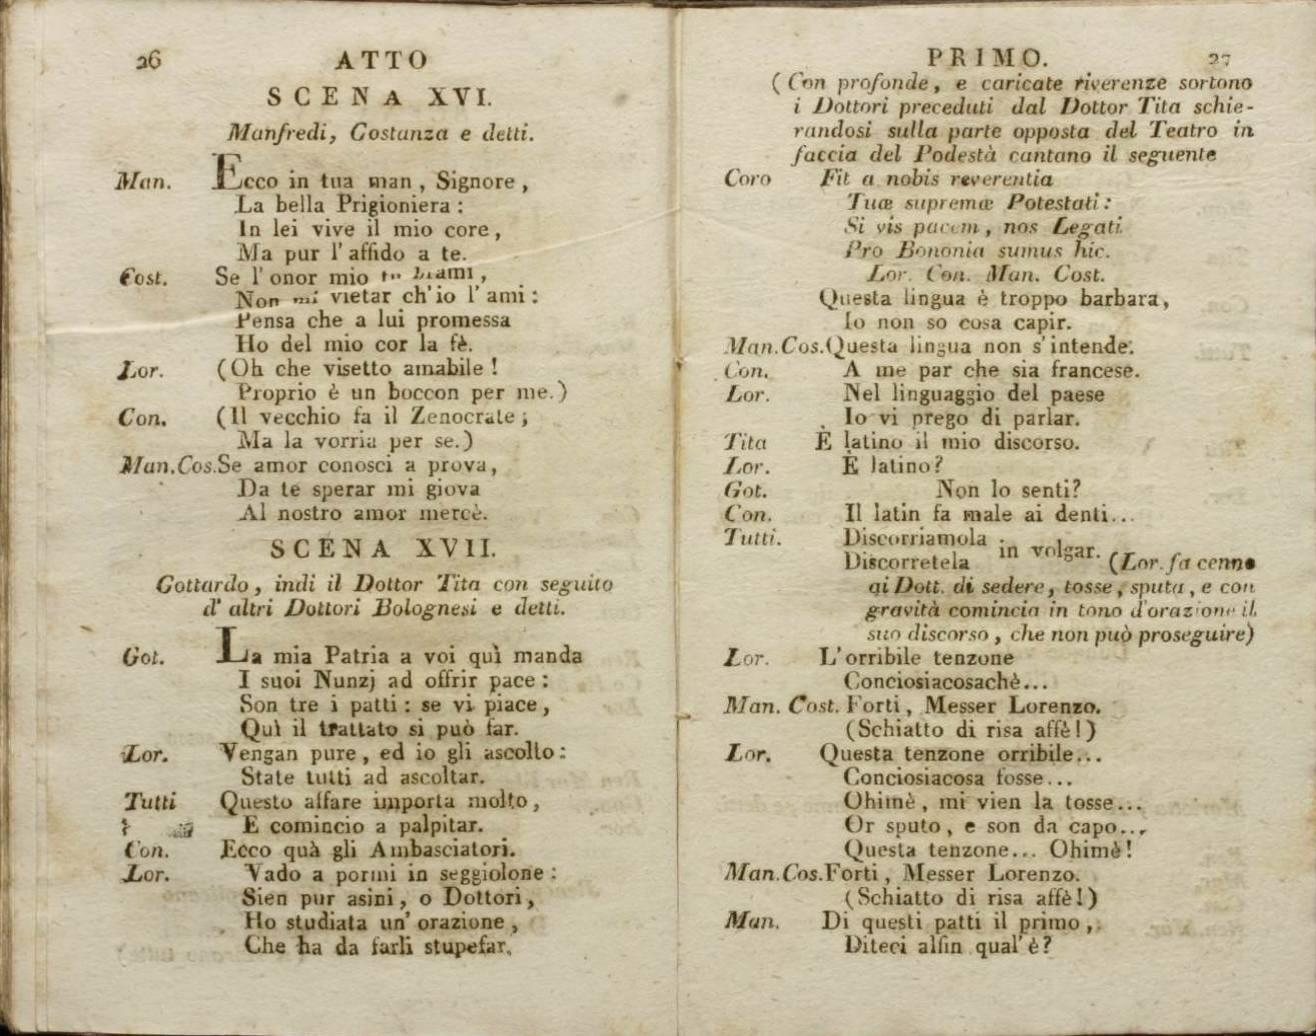 26 ATTO
SCENA XVI.
Manfredi, Costanza e detti.
Man. Ecco in tua man, Signore,
La bella Prigioniera:
In lei vive il mio core,
Ma pur l'affido a te.
Cost. Se l'onor mio
Non mi vietar ch'io l'ami:
Pensa che a lui promessa
Ho del mio cor la fè.
Lor. (Oh che visetto amabile!
Proprio è un boccon per me.)
Con. (Il vecchio fa il Zenocrate;
Ma la vorria per se.)
Man.Cos. Se amor conosci a prova,
Da te sperar mi giova
Al nostro amor mercè.
SCENA XVII.
Gottardo, indi il Dottor Tita con seguito
d'altri Dottori Bolognesi e detti.
Got. La mia Patria a voi quì manda
I suoi Nunzj ad offrir pace:
Son tre i patti: se vi piace,
Quì il trattato si può far.
Lor. Vengan pure, ed io gli ascolto:
State tutti ad ascoltar.
Tutti Questo affare importa molto,
E comincio a palpitar.
Con. Ecco quà gli Ambasciatori.
Lor. Vado a pormi in seggiolone:
Sien pur asini, o Dottori,
Ho studiata un'orazione,
Che ha da farli stupefar.
PRIMO. 27
(Con profonde, e caricate riverenze sortono
i Dottori preceduti dal Dottor Tita schie-
randosi sulla parte opposta del Teatro in
faccia del Podestà cantano il seguente
Coro Fit a nobis reverentia
Tuæ supremæ Potestati:
Si vis pacem, nos Legati
Pro Bononia sumus hic.
Lor. Con. Man. Cost.
Questa lingua è troppo barbara,
Io non so cosa capir.
Man.Cos. Questa lingua non s'intende.
Con. A me par che sia francese.
Lor. Nel linguaggio del paese
Io vi prego di parlar.
Tita È latino il mio discorso.
Lor. È latino?
Got. Non lo senti?
Con. Il latin fa male ai denti...
Tutti. Discorriamola
Discorretela in volgar. (Lor. fa cenno
ai Dott. di sedere, tosse, sputa, e con
gravità comincia in tono d'orazione il
suo discorso, che non può proseguire)
Lor. L'orribile tenzone
Conciosiacosachè...
Man. Cost. Forti, Messer Lorenzo.
(Schiatto di risa affè!)
Lor. Questa tenzone orribile...
Conciosiacosa fosse...
Ohimè, mi vien la tosse...
Or sputo, e son da capo...
Questa tenzone... Ohimè!
Man.Cos. Forti, Messer Lorenzo.
(Schiatto di risa affè!)
Man. Di questi patti il primo,
Diteci alfin qual'è?